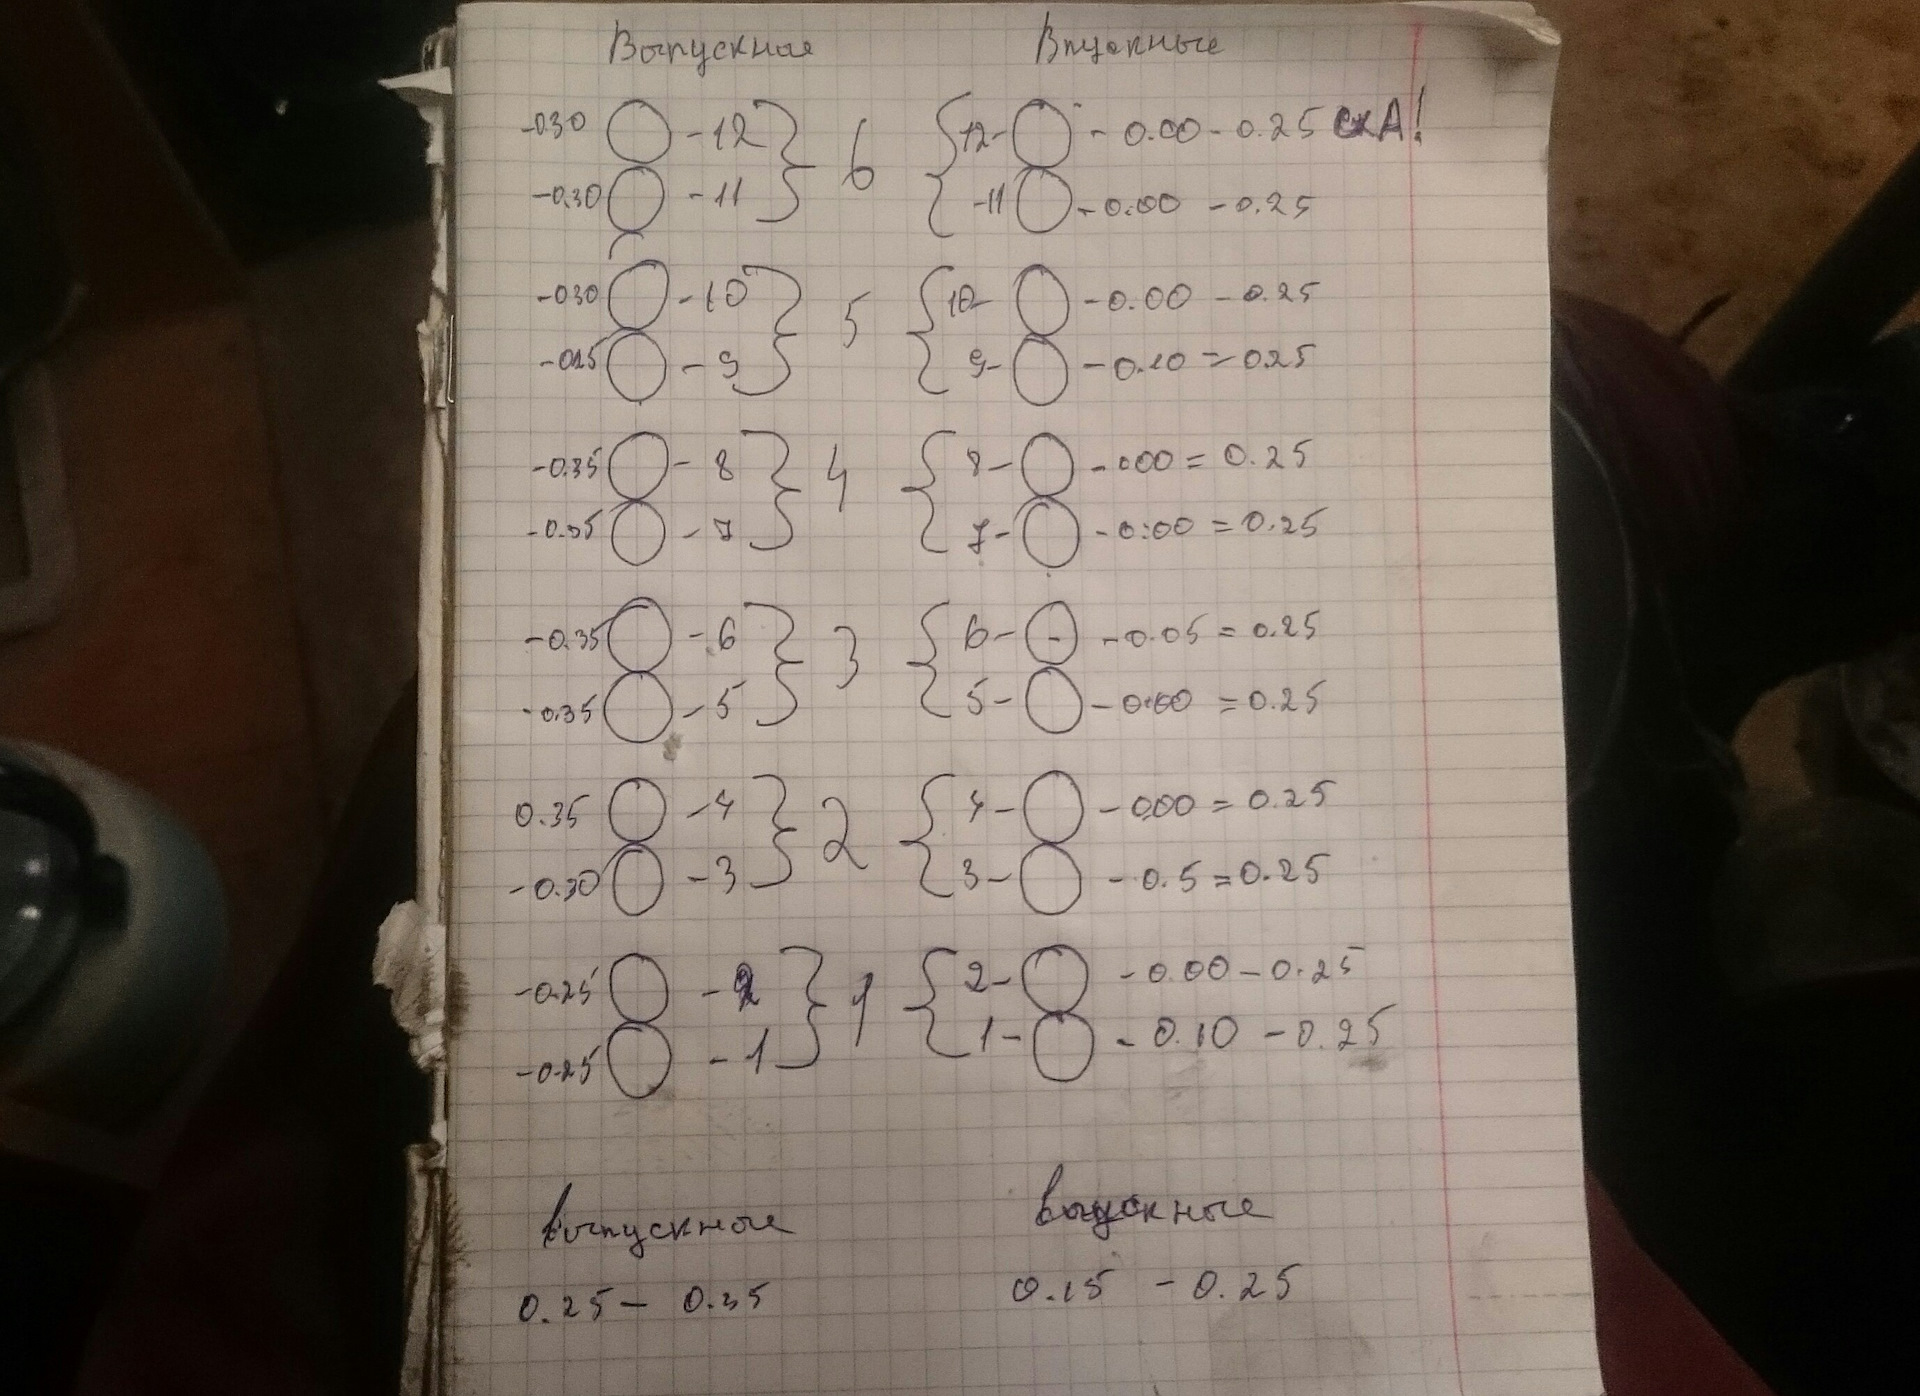 Выпускные Впускные
-0.30 -12 6 12- - 0.00 - 0.25 скА!
-0.30 -11 -11 -0.00 -0.25
-0.30 -10 5 10- -0.00 -0.25
-0.25 -9 9- -0.10 = 0.25
-0.35 -8 4 8- -000 = 0.25
-0.35 -7 7- -0.00 = 0.25
-0.35 -6 3 6- -0.05 = 0.25
-0.35 -5 5- -0.00 = 0.25
0.35 -4 2 4- -000 = 0.25
-0.30 -3 3- -0.5 = 0.25
-0.25 -2 1 2- -0.00 - 0.25
-0.25 -1 1- -0.10 - 0.25
выпускные впускные
0.25 - 0.35 0.15 - 0.25